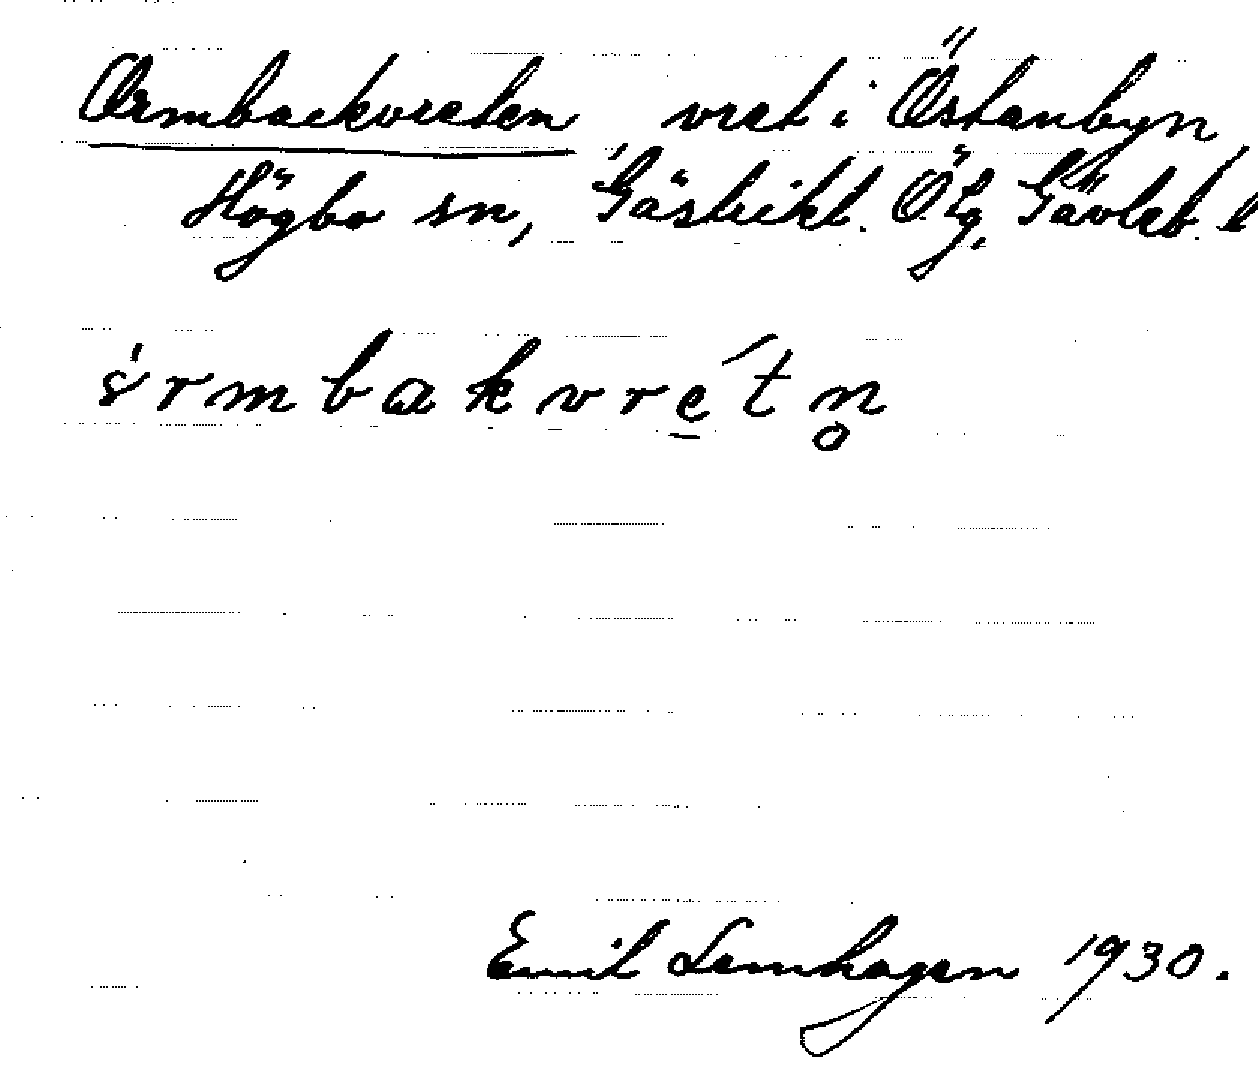 Ormbackvreten, vret i Östanbyn
Högbo sn, Gästrikl. Ö Lg, Gävleb. l
ò́rmbakvrét n̥
Emil Lemhagen 1930.